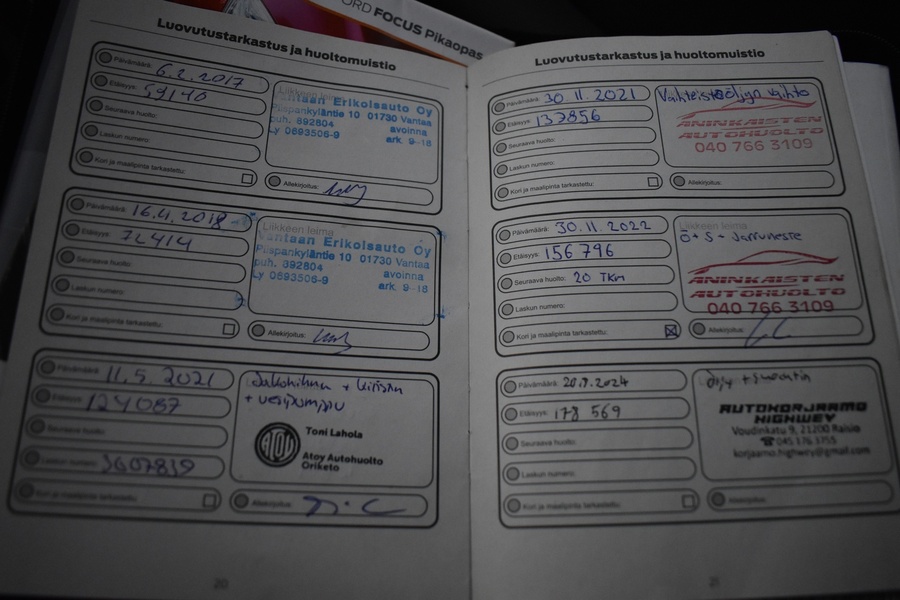 ORD FOCUS Pikaopas
Luovutustarkastus ja huoltomuistio
Päivämäärä: 6.2.2017
Etäisyys: 59140
Seuraava huolto:
Laskun numero:
Kori ja maalipinta tarkastettu:
Liikkeen leima
Vantaan Erikoisauto Oy
Piispankyläntie 10 01730 Vantaa
puh. 892804 avoinna
Ly 0693506-9 ark. 9-18
Allekirjoitus:
Päivämäärä: 16.4.2018
Etäisyys: 72414
Seuraava huolto:
Laskun numero:
Kori ja maalipinta tarkastettu:
Liikkeen leima
Vantaan Erikoisauto Oy
Piispankyläntie 10 01730 Vantaa
puh. 892804 avoinna
Ly 0693506-9 ark. 9-18
Allekirjoitus:
Päivämäärä: 11.5.2021
Etäisyys: 124087
Seuraava huolto:
Laskun numero: 3607839
Kori ja maalipinta tarkastettu:
Jakohihna + kiristin
+ vesipumppu
ATOY
Toni Lahola
Atoy Autohuolto
Oriketo
Allekirjoitus:
20
Luovutustarkastus ja huoltomuistio
Päivämäärä: 30.11.2021
Etäisyys: 137856
Seuraava huolto:
Laskun numero:
Kori ja maalipinta tarkastettu:
Vaihteistoöljyn vaihto
ANINKAISTEN
AUTOHUOLTO
040 766 3109
Allekirjoitus:
Päivämäärä: 30.11.2022
Etäisyys: 156796
Seuraava huolto: 20 TKm
Laskun numero:
Kori ja maalipinta tarkastettu:
Liikkeen leima
Ö + S + Jarruneste
ANINKAISTEN
AUTOHUOLTO
040 766 3109
Allekirjoitus:
Päivämäärä: 20.9.2024
Etäisyys: 178 569
Seuraava huolto:
Laskun numero:
Kori ja maalipinta tarkastettu:
öljy + suodatin
AUTOKORJAAMO
HIGHWEY
Voudinkatu 9, 21200 Raisio
045 176 1755
korjaamo.highwey@gmail.com
Allekirjoitus:
21